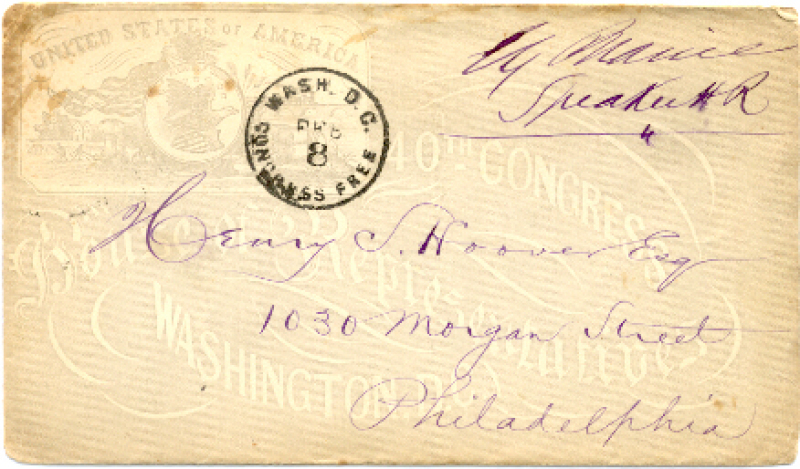 UNITED STATES OF AMERICA
Speaker HR
WASH. D.C.
FEB
8
CONGRESS FREE
40TH CONGRESS
House of Representatives
WASHINGTON
Henry S. Hoover Esq
1030 Morgan Street
Philadelphia